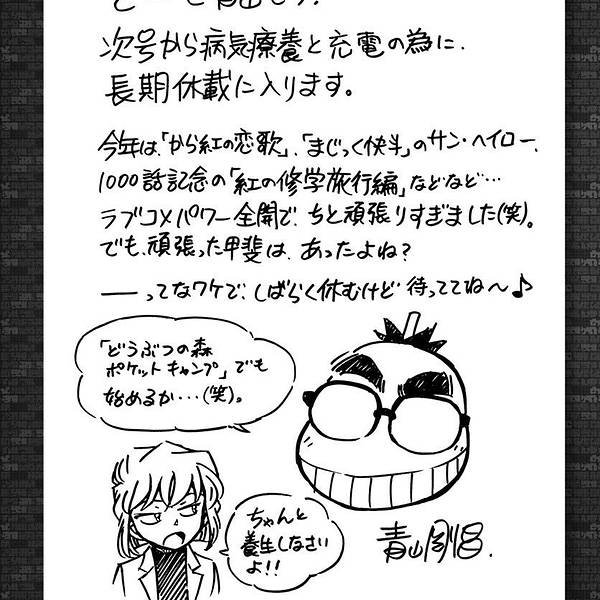 次号から病気療養と充電の為に、
長期休載に入ります。
今年は、「から紅の恋歌」、「まじっく快斗」のサン・ヘイロー、
1000話記念の「紅の修学旅行編」などなど…
ラブコメパワー全開で、ちと頑張りすぎました(笑)。
でも、頑張った甲斐は、あったよね?
──ってなワケで、しばらく休むけど 待っててね〜♪
「どうぶつの森
ポケットキャンプ」でも
始めるか…(笑)。
ちゃんと
養生しなさい
よ!!
青山剛昌.